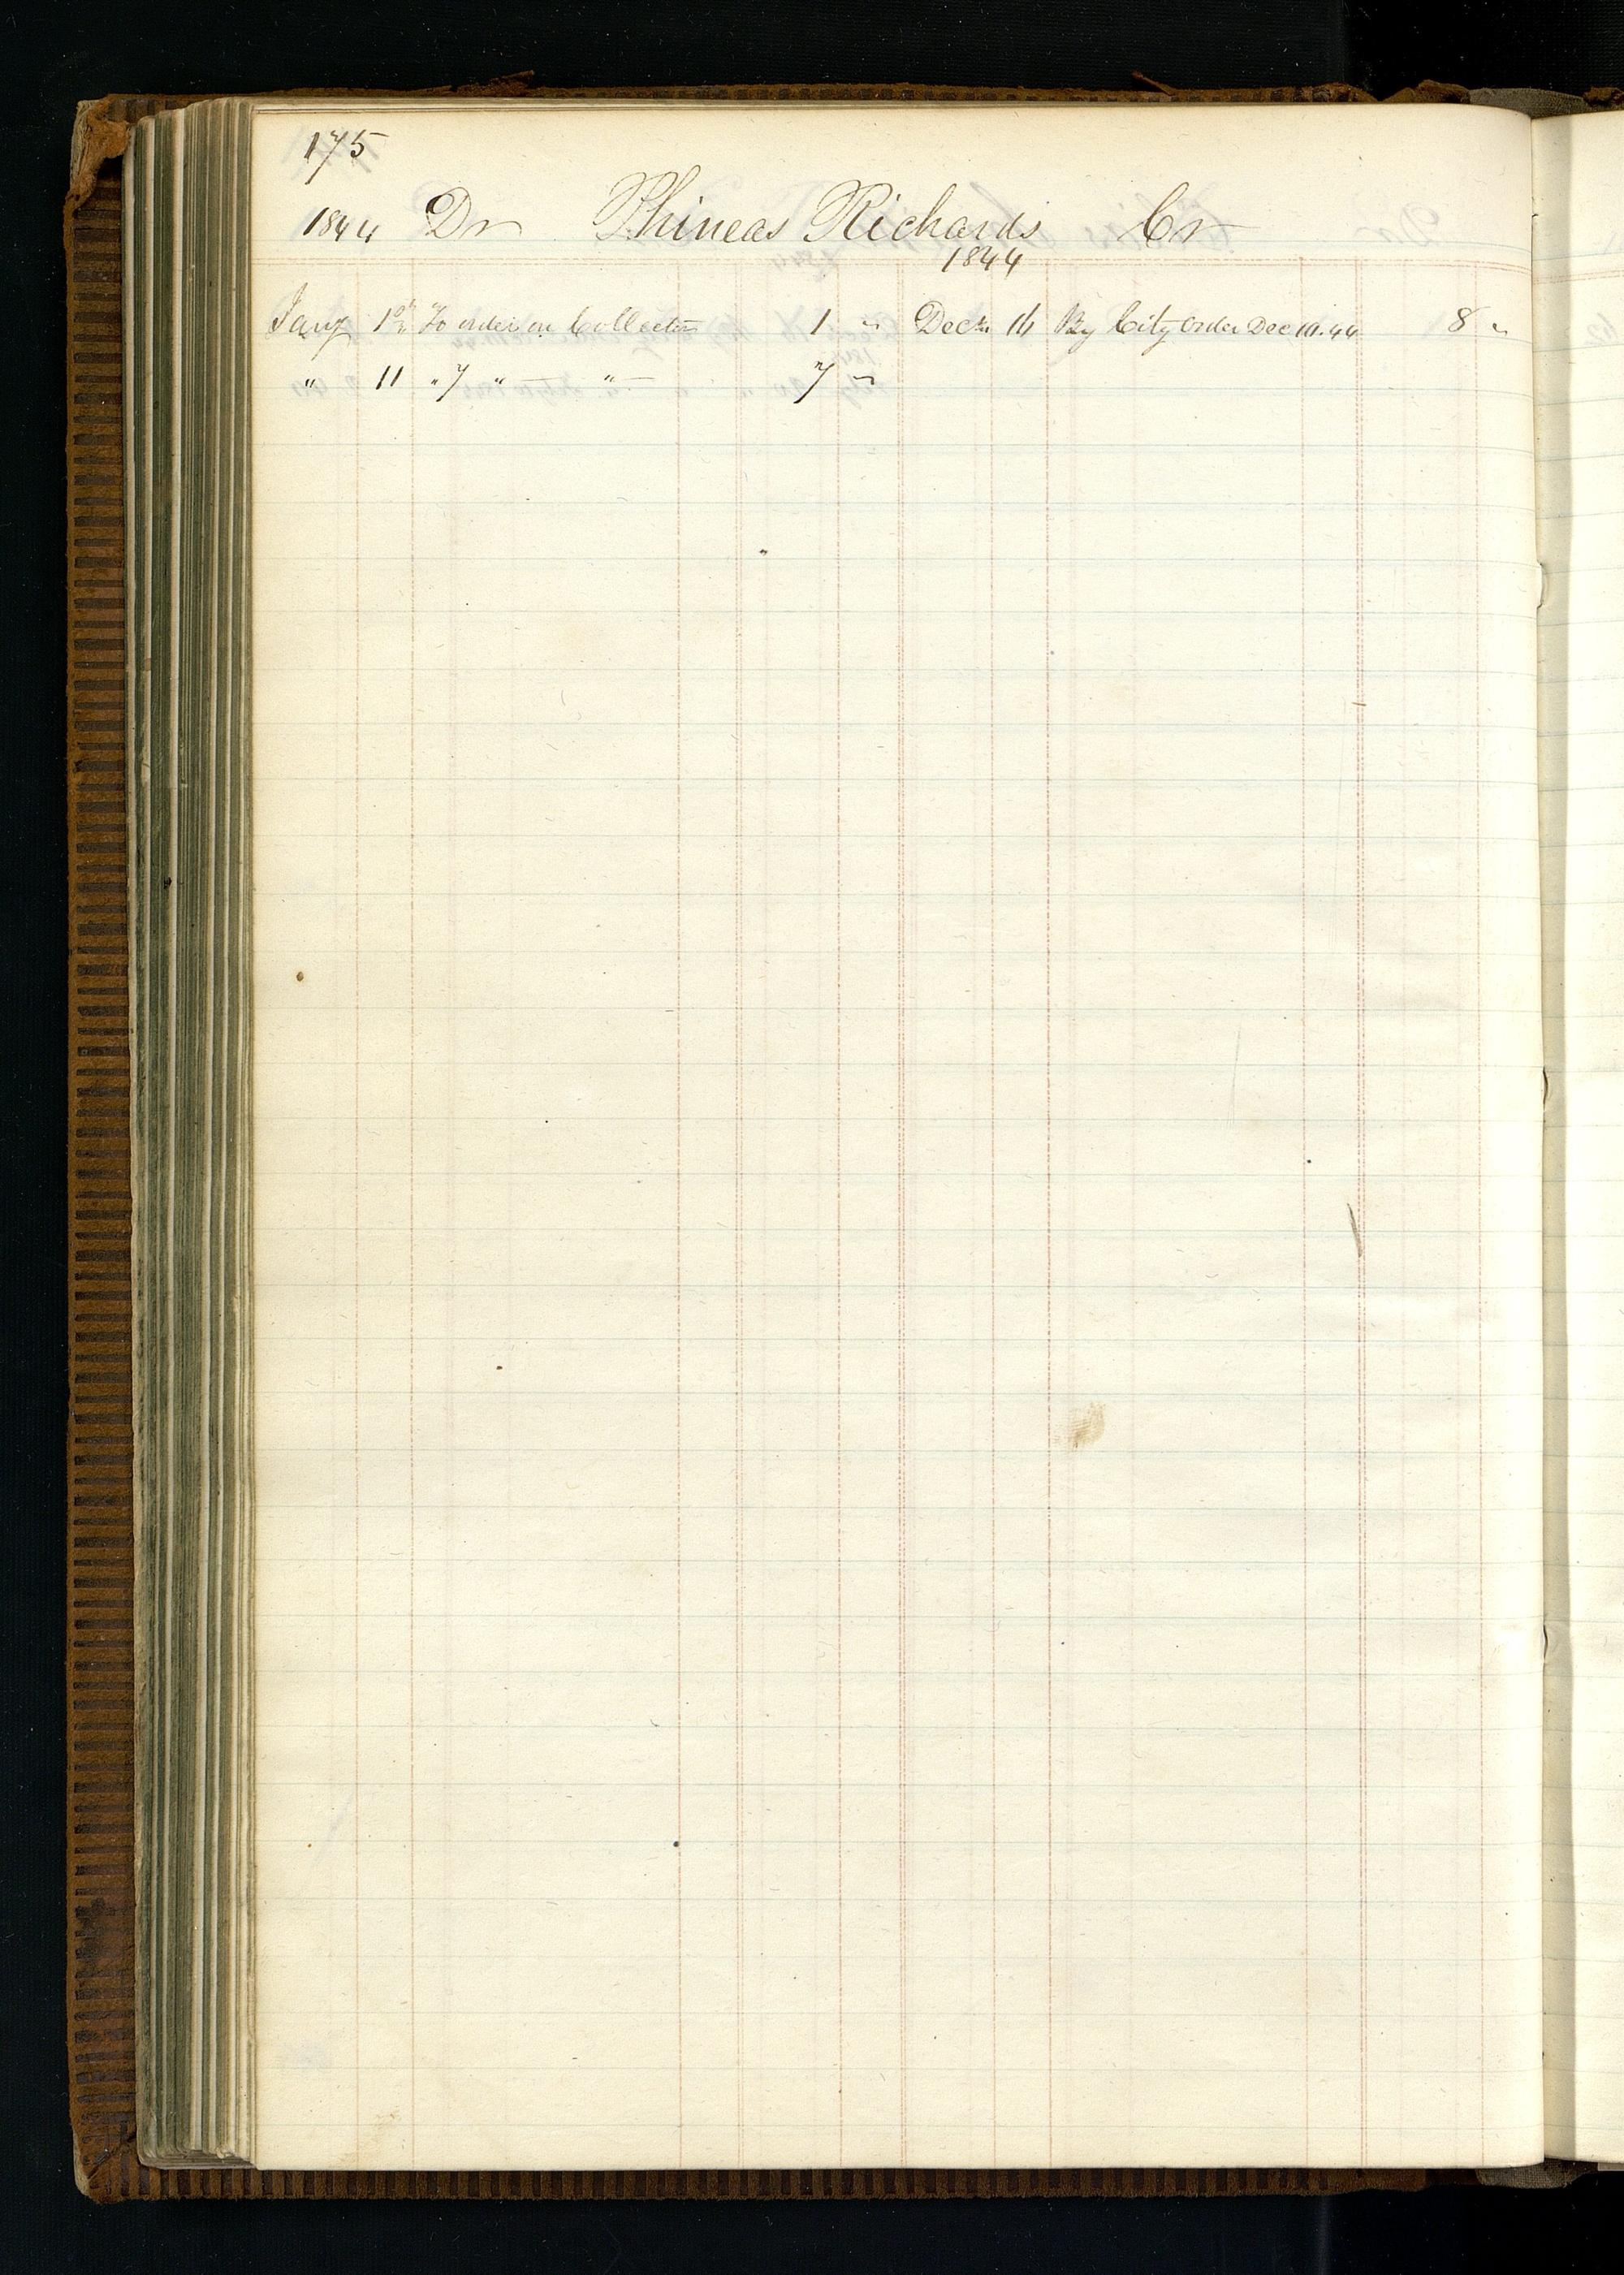 175
1844 Dr Phineas Richards Cr
1844
Jany 1st To order on Collector 1 " Decr 14 By City Order Dec 14. 44 8 "
" 11 " 7 " — " — 7 "